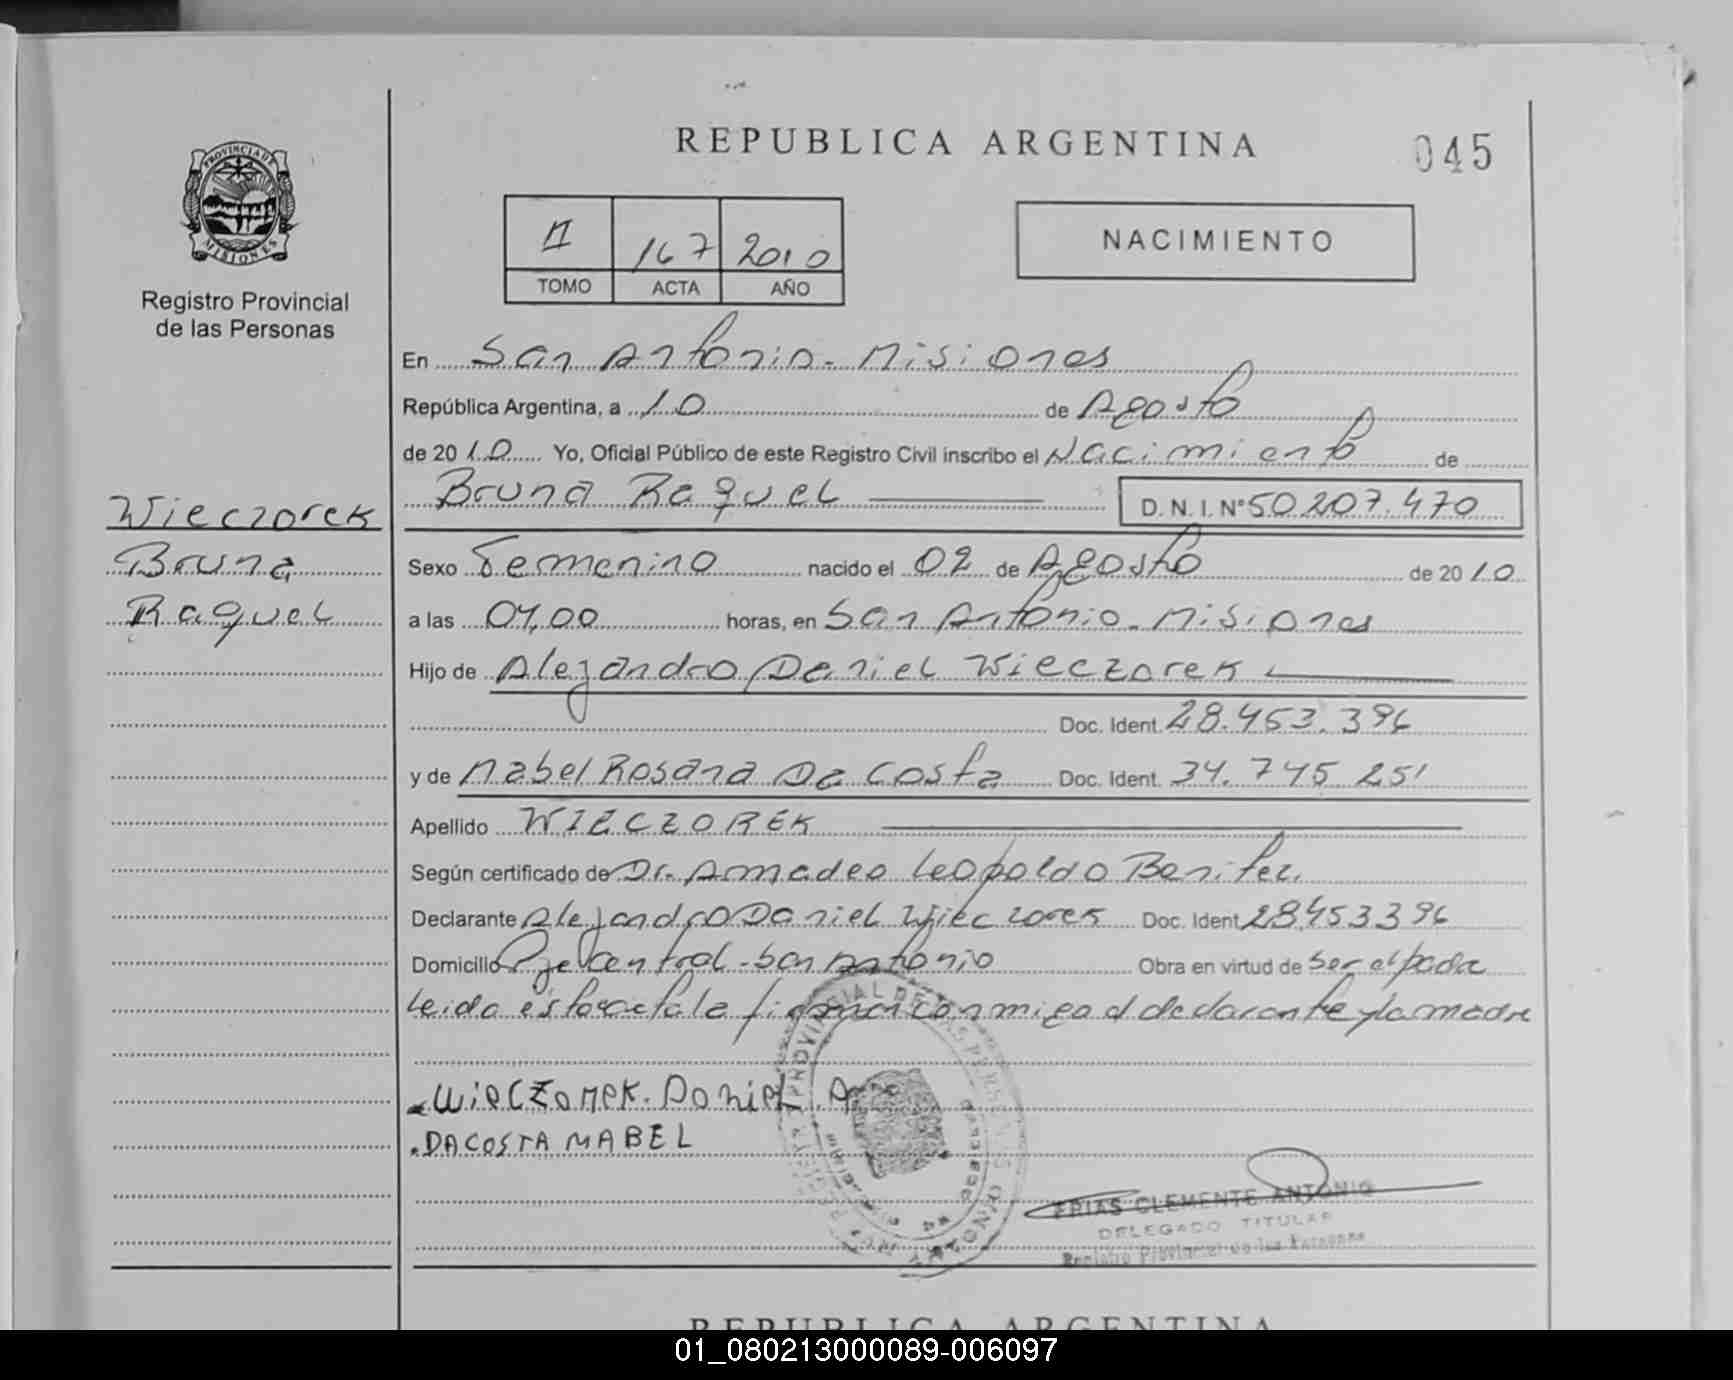 REPUBLICA ARGENTINA
045
PROVINCIA DE MISIONES
Registro Provincial
de las Personas
II 167 2010
TOMO ACTA AÑO
NACIMIENTO
En San Antonio - Misiones
República Argentina, a 10 de Agosto
de 2010 Yo, Oficial Público de este Registro Civil inscribo el Nacimiento de
Bruna Raquel D.N.I. Nº 50.207.470
Wieczorek
Bruna
Raquel
Sexo Femenino nacido el 02 de Agosto de 2010
a las 04,00 horas, en San Antonio - Misiones
Hijo de Alejandro Daniel Wieczorek
Doc. Ident. 28.453.396
y de Mabel Rosana Da Costa Doc. Ident. 34.745.251
Apellido WIECZOREK
Según certificado de Dr. Armadeo Leopoldo Benitez.
Declarante Alejandro Daniel Wieczorek Doc. Ident 28.453396
Domicilio Pje Central - San Antonio Obra en virtud de ser el padre
Leida esta acta la firman conmigo el declarante y la madre
WiecZorek. Daniel. A
DACOSTA MABEL
FRIAS CLEMENTE ANTONIO
DELEGADO TITULAR
Registro Provincial de las Personas
REPUBLICA ARGENTINA
01_080213000089-006097